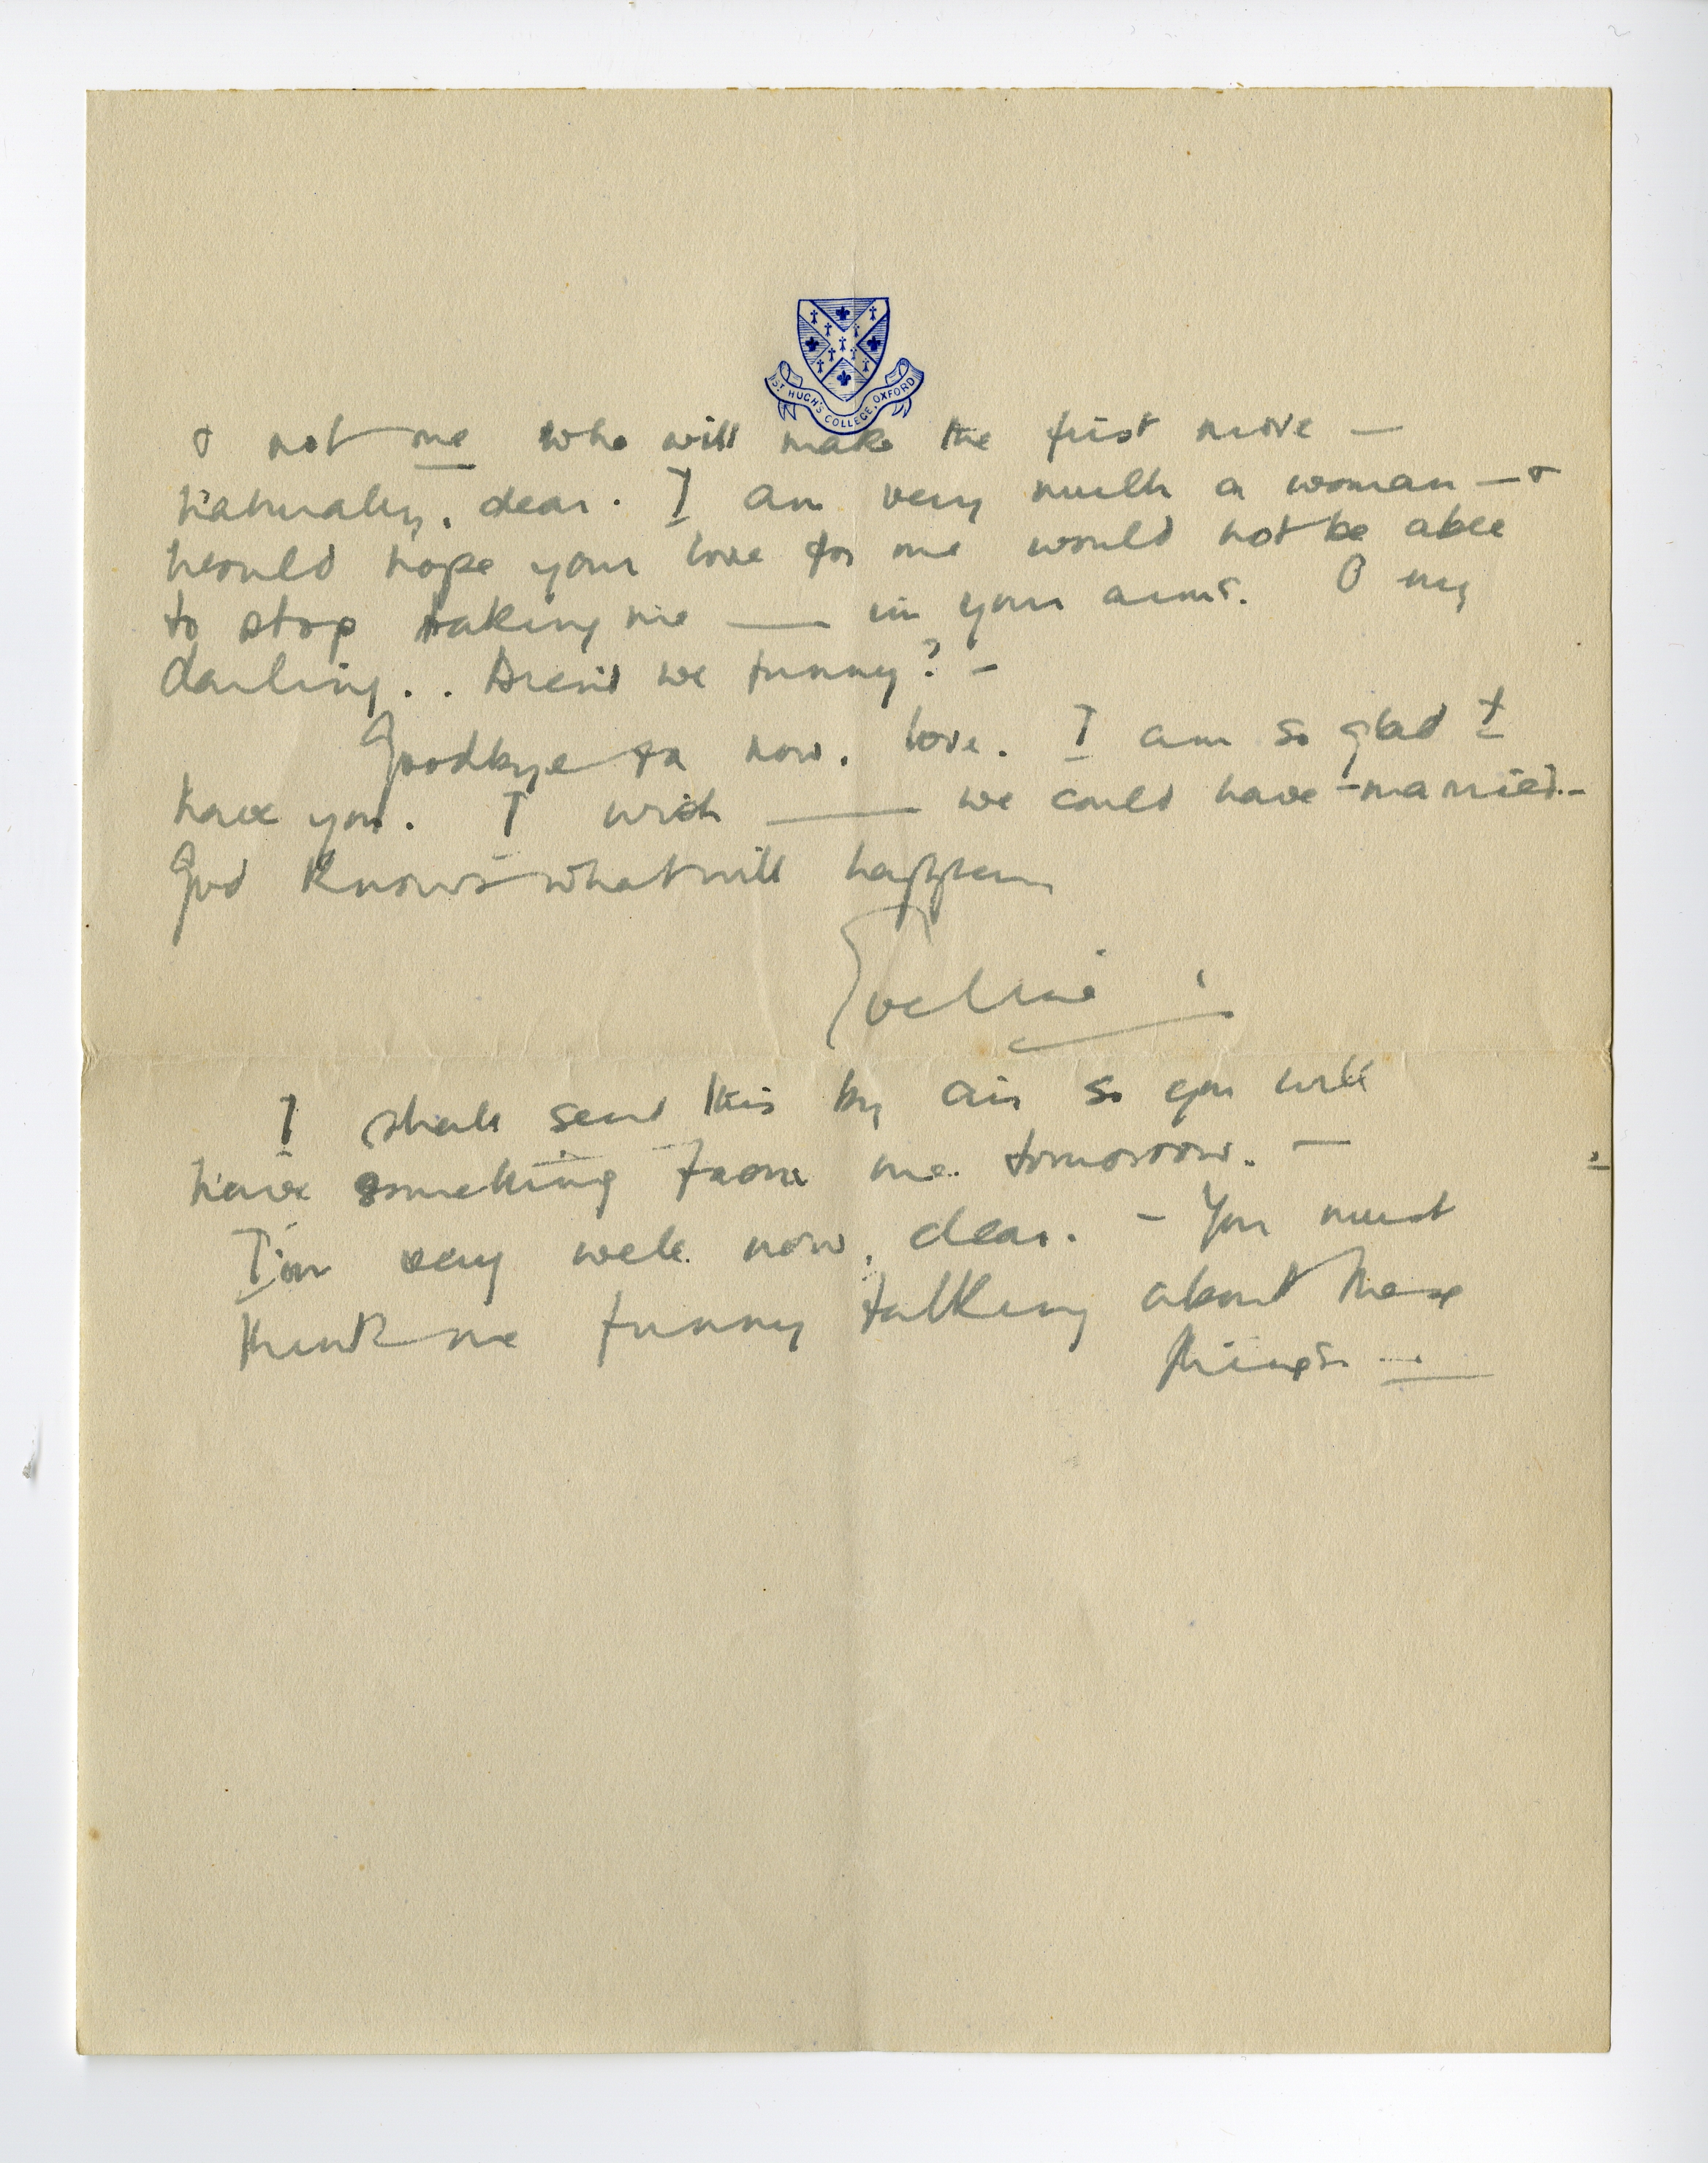 ST HUGH'S COLLEGE, OXFORD
& not me who will make the first move —
naturally, dear. I am very much a woman — &
would hope your love for me would not be able
to stop taking me — in your arms. O my
darling. . Aren't we funny? –
Goodbye for now, love. I am so glad I
have you. I wish — we could have – married. –
God knows what will happen
Eveline
I shall send this by air so you will
have something from me tomorrow. —
I'm very well now, dear. – You must
think me funny talking about these
things —